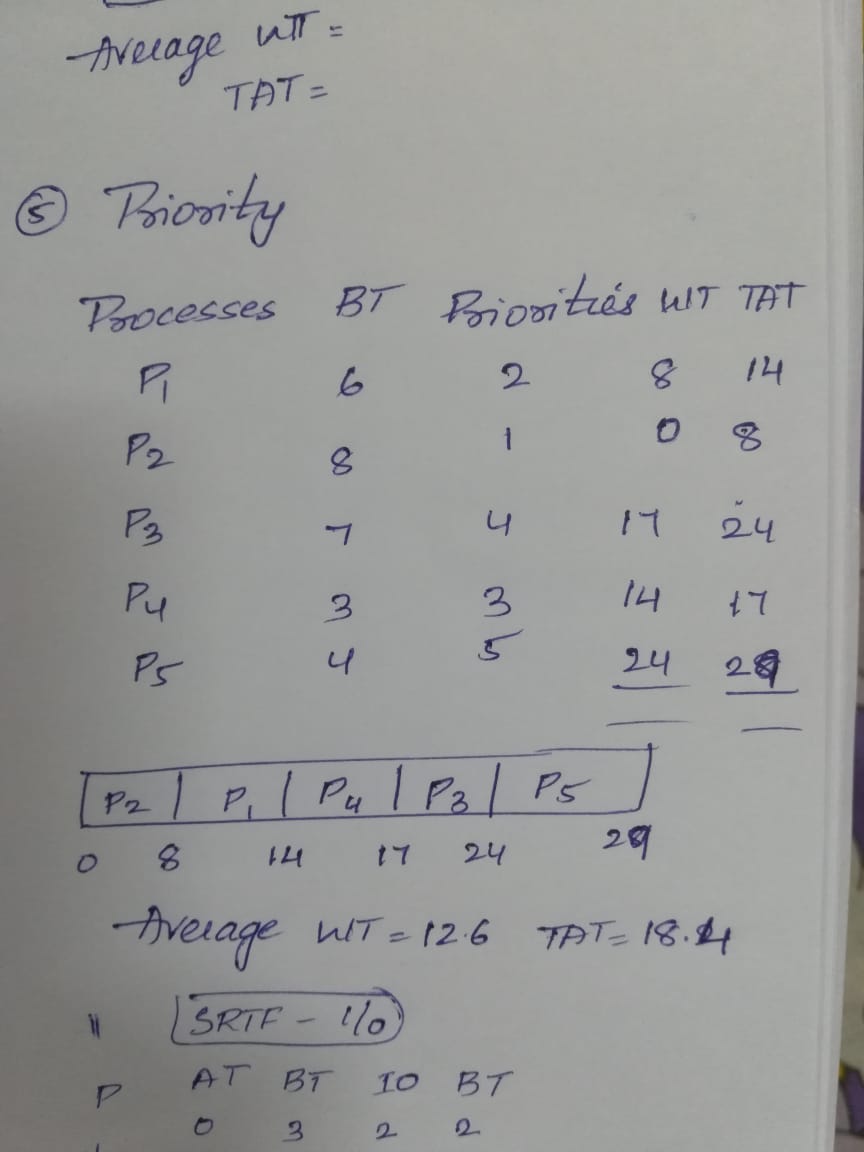 Average WT =
TAT =
⑤ Priority
Processes BT Priorities WT TAT
P1 6 2 8 14
P2 8 1 0 8
P3 7 4 17 24
P4 3 3 14 17
P5 4 5 24
P2 P1 P4 P3 P5
0 8 14 17 24
Average WT = 12.6 TAT = 18.4
SRTF - I/O
P AT BT IO BT
0 3 2 2